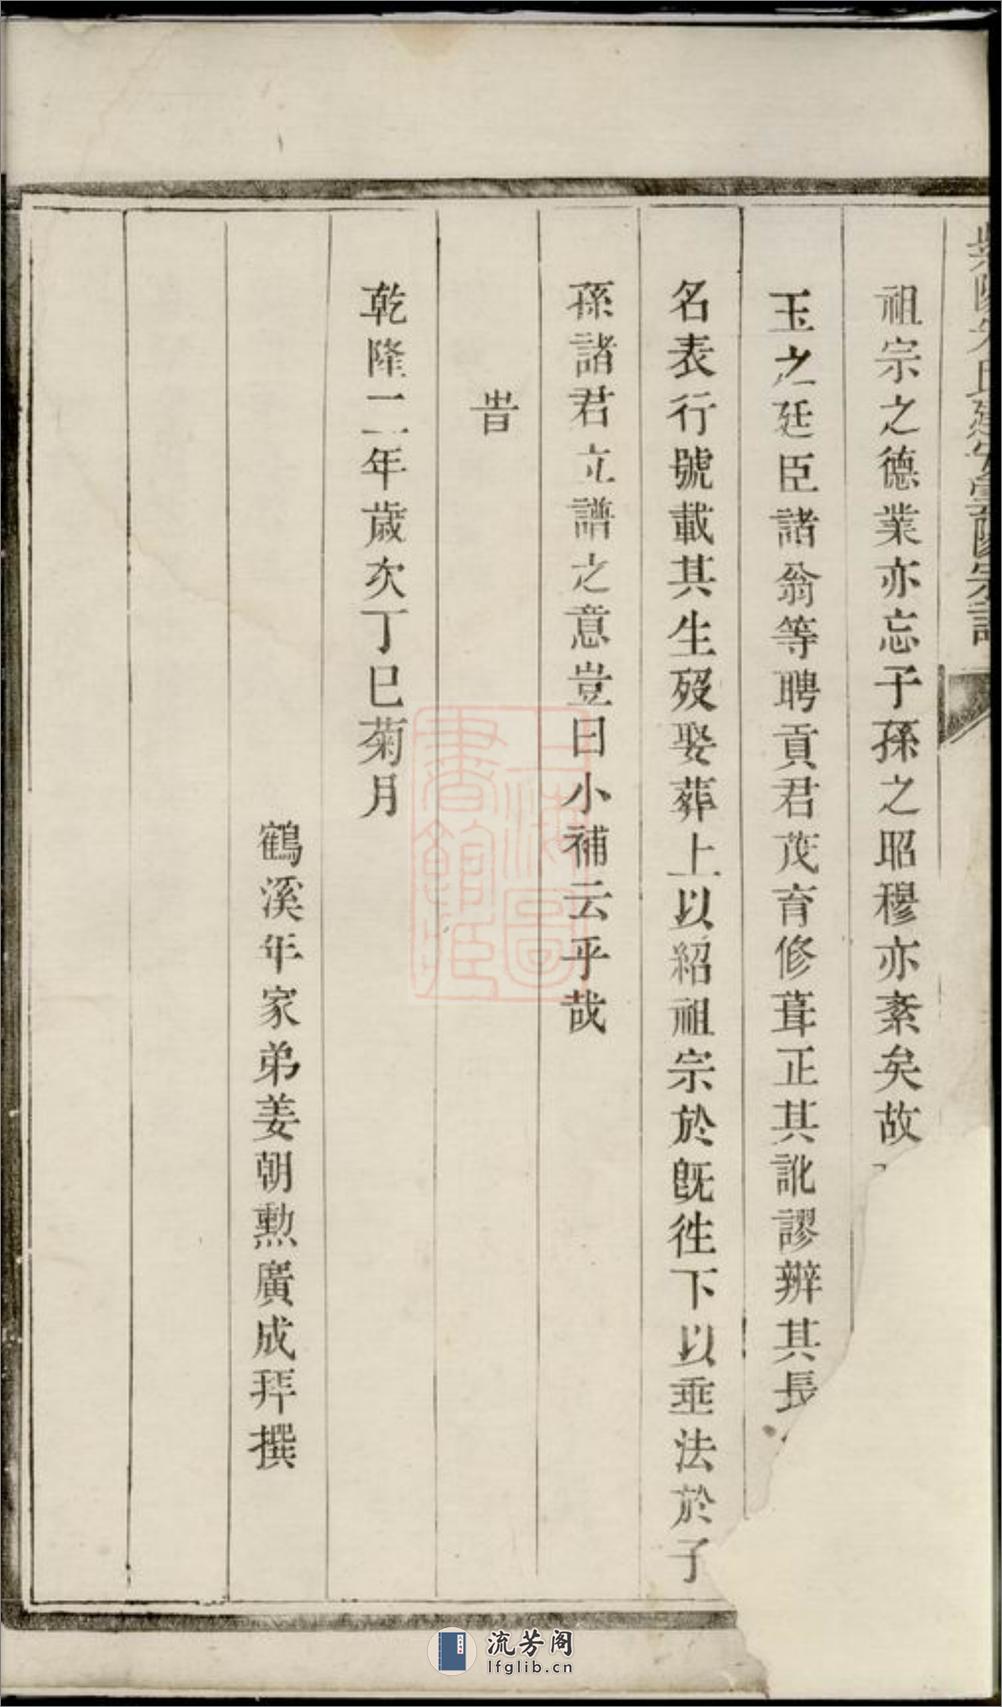 祖宗之德業亦忘子孫之昭穆亦紊矣故
玉之廷臣諸翁等聘貢君茂育修葺正其訛謬辨其長
名表行號載其生歿娶葬上以紹祖宗於旣徃下以垂法於子
孫諸君立譜之意豈曰小補云乎哉
旹
乾隆二年歲次丁巳菊月
鶴溪年家弟姜朝勲廣成拜撰
上海圖
書館藏
流芳阁
lfglib.cn